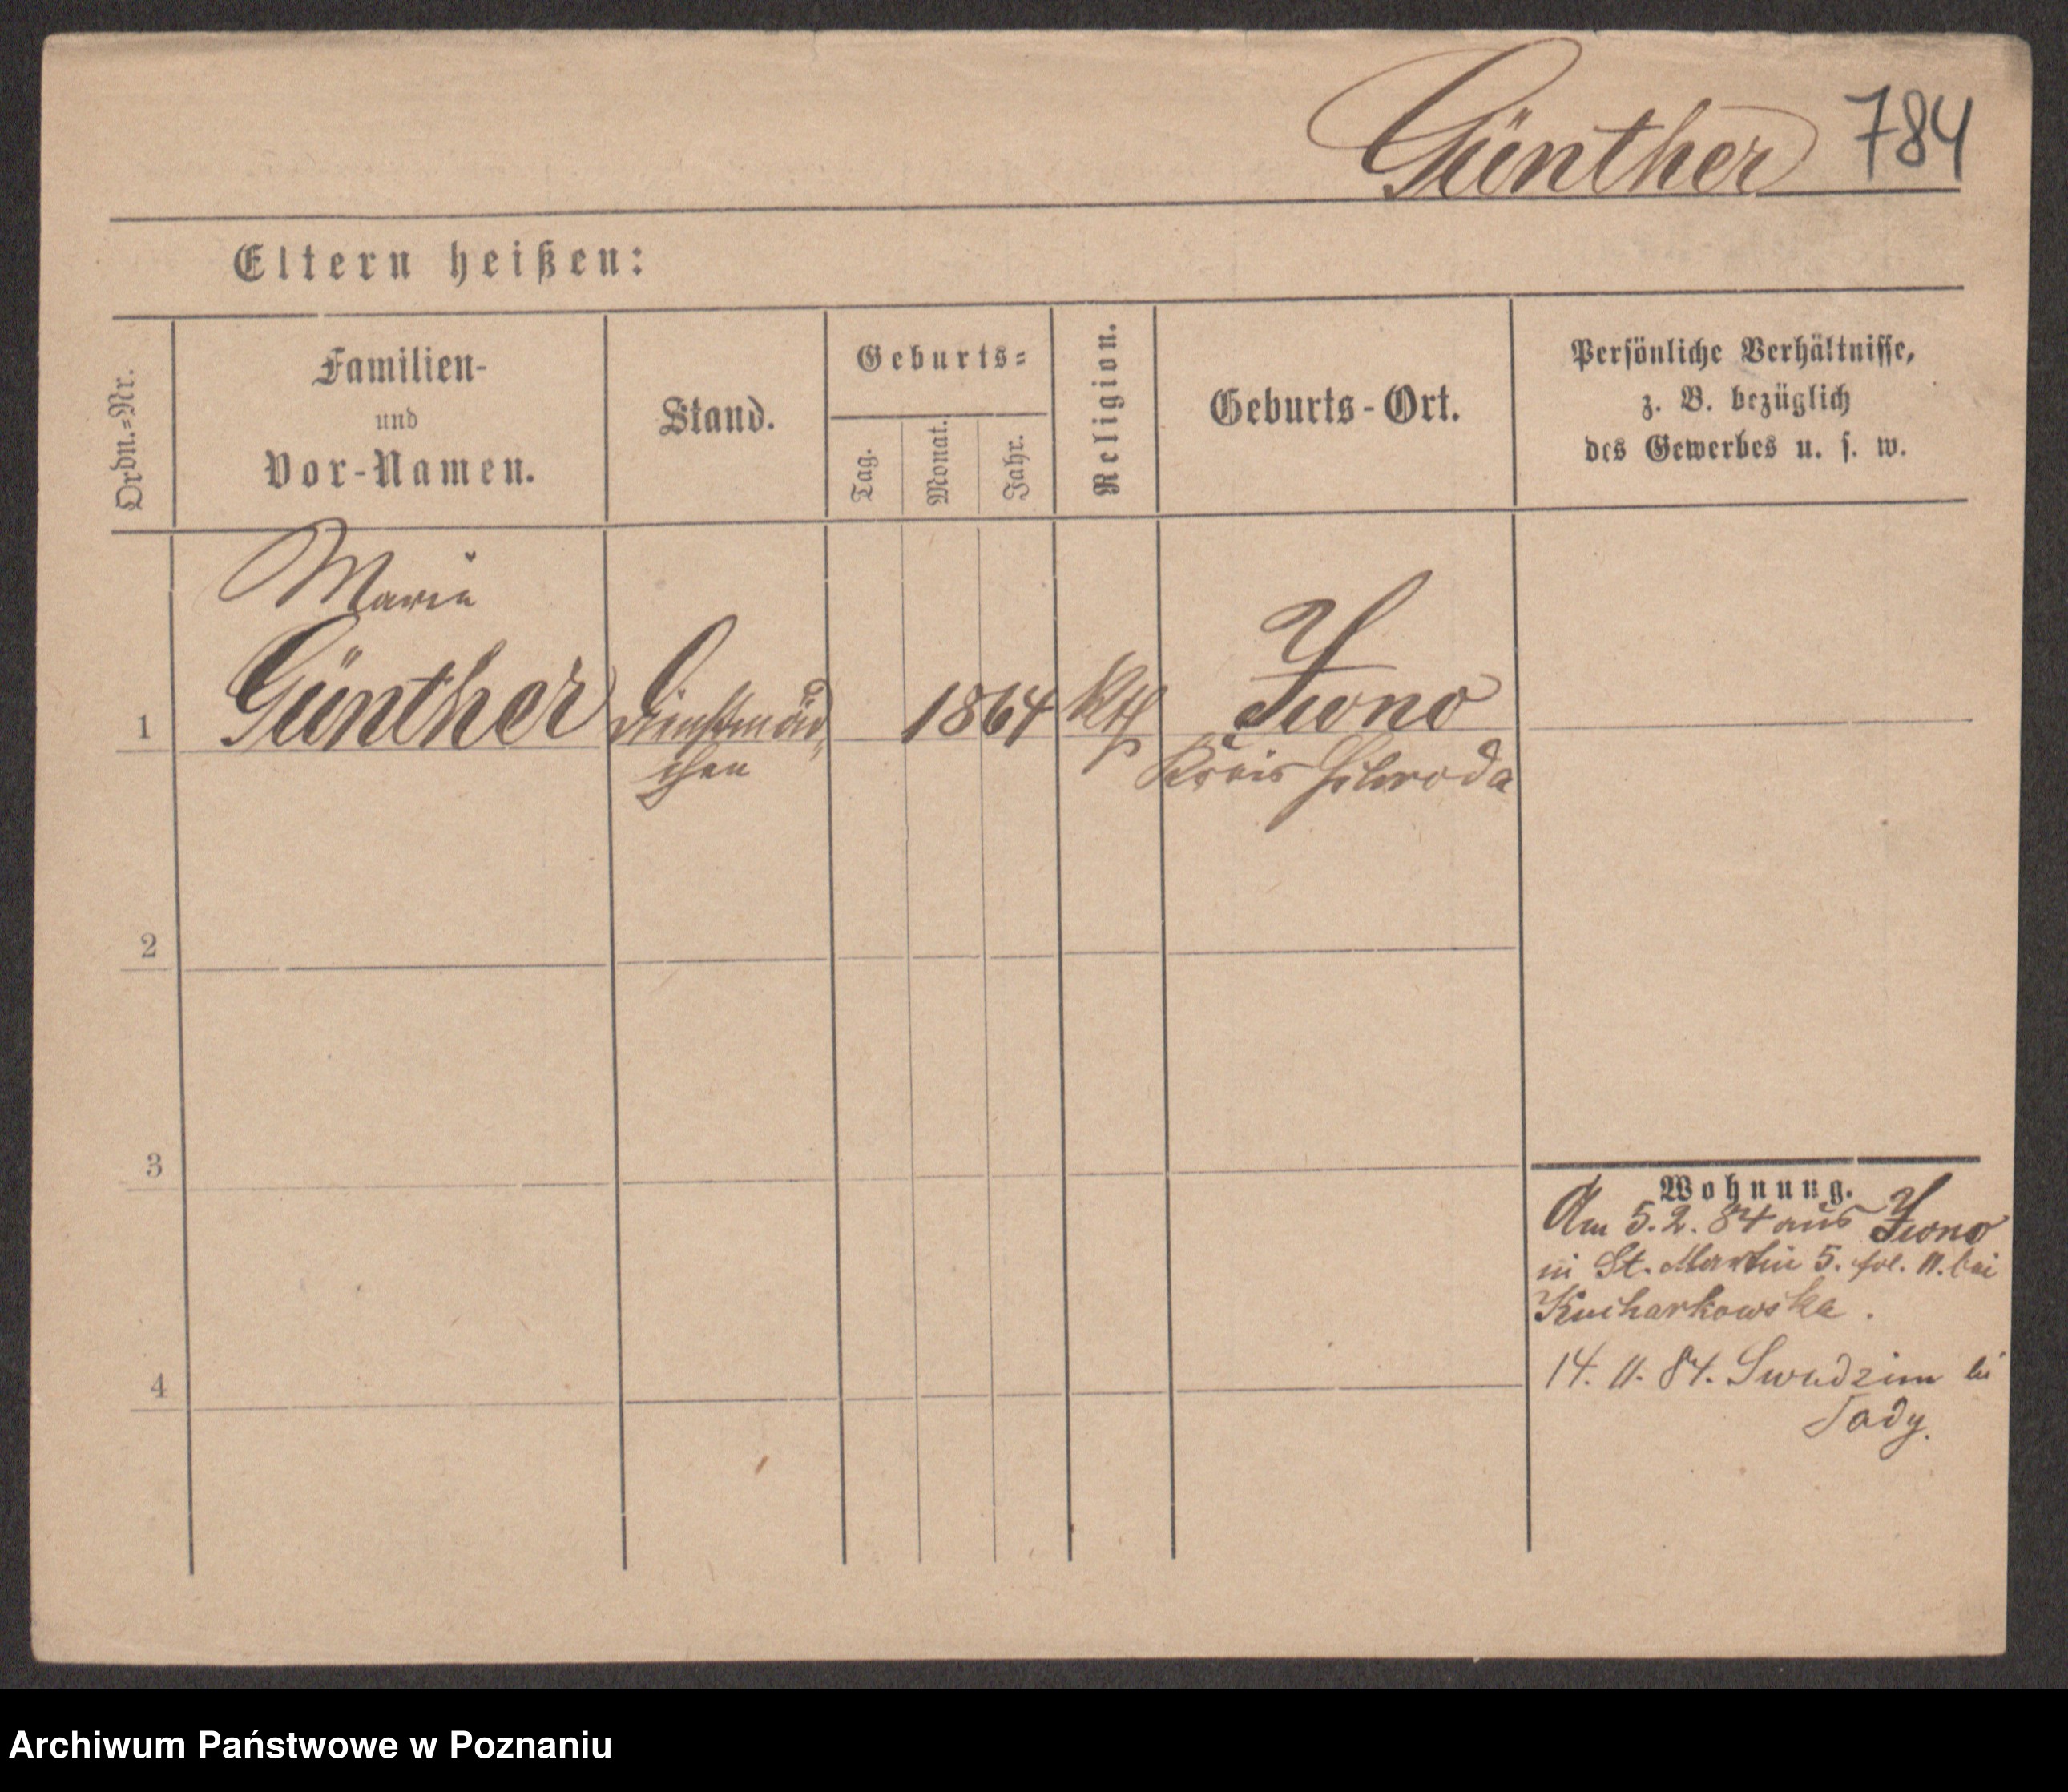 Günther 784
Eltern heißen:
Ordn.=Nr.
Familien-
und
Vor-Namen.
Stand.
Geburts=
Tag.
Monat.
Jahr.
Religion.
Geburts-Ort.
Persönliche Verhältnisse,
z. B. bezüglich
des Gewerbes u. s. w.
Marie
1 Günther Dienstmäd 1864 kth Iwno
chen Kreis Schroda
2
3
4
Wohnung.
Am 5.2.84 aus Iwno
in St. Martin 5. II. bei
Kucharkowska.
14. 11. 84. Swadzim bei
Sady.
Archiwum Państwowe w Poznaniu